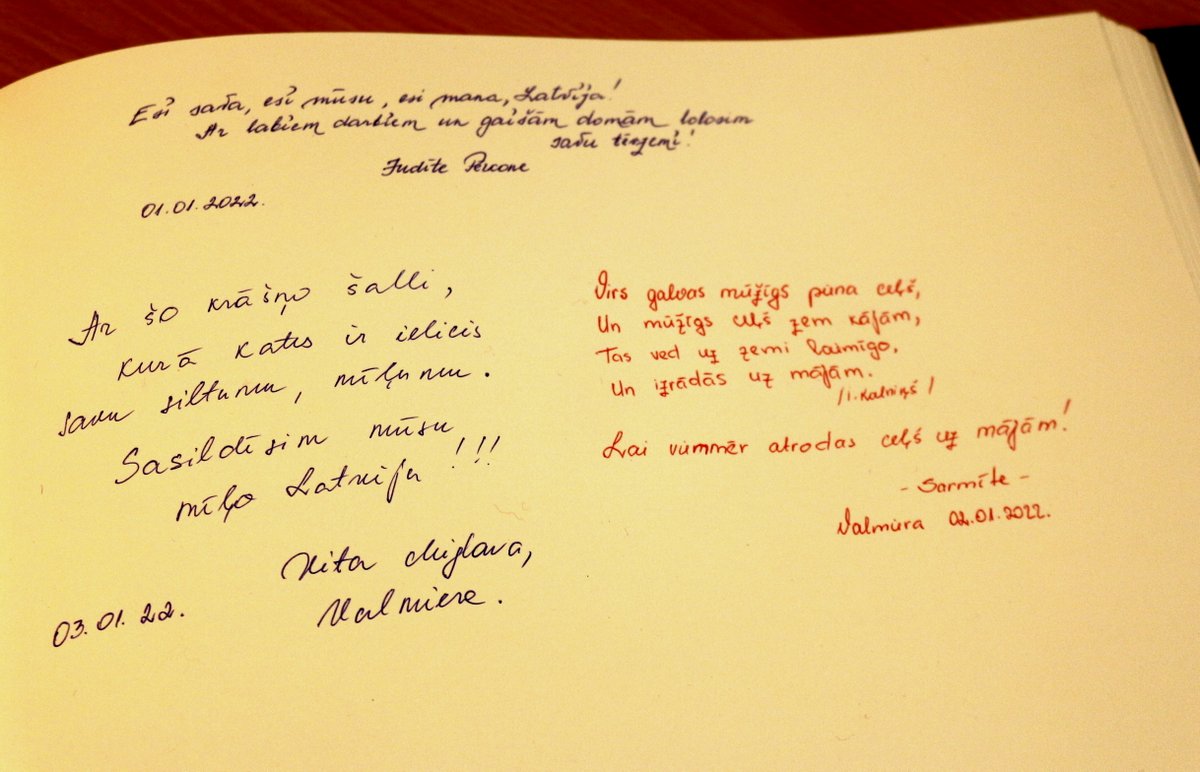 Esi sava, esi mūsu, esi mana, Latvija!
Ar labiem darbiem un gaišām domām lolosim
savu tēvzemi!
Judīte Percone
01.01.2022.
Ar šo krāšņo šalli,
kurā katrs ir ielicis
savu siltumu, mīļumu.
Sasildīsim mūsu
mīļo Latviju!!!
Vita Miglava,
Valmiera.
03.01.22.
Virs galvas mūžīgs piena ceļš,
Un mūžīgs ceļš zem kājām,
Tas ved uz zemi laimīgo,
Un izrādās uz mājām.
/I. Kalniņš/
Lai vienmēr atrodas ceļš uz mājām!
- Sarmīte -
Valmiera 02.01.2022.